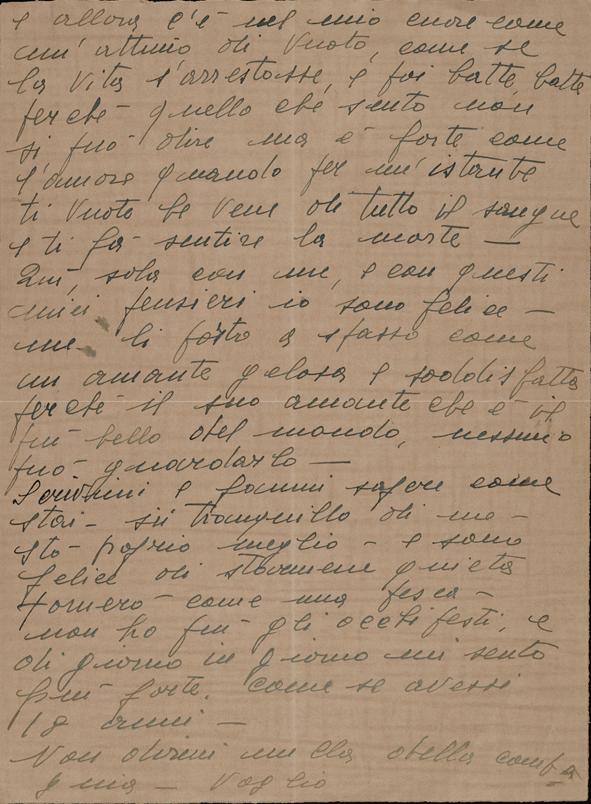 e allora c'è nel mio cuore come
un'attimo di vuoto, come se
la vita s'arrestasse, e poi batte, batte
perché quello che sento non
si può dire ma è forte come
l'amore quando per un'istante
ti vuota le vene di tutto il sangue
e ti fà sentire la morte —
Quì, sola con me, e con questi
miei pensieri io sono felice —
me li porto a spasso come
un amante gelosa e soddisfatta
perché il suo amante che è il
più bello del mondo, nessuno
può guardarlo —
Scrivimi e fammi sapere come
stai - sii tranquillo di me -
sto proprio meglio - e sono
felice di starmene quieta
Tornerò come una pesca -
non ho più gli occhi pesti, e
di giorno in giorno mi sento
più forte. come se avessi
18 anni —
Non dirmi nulla della compa
gnia — Voglio